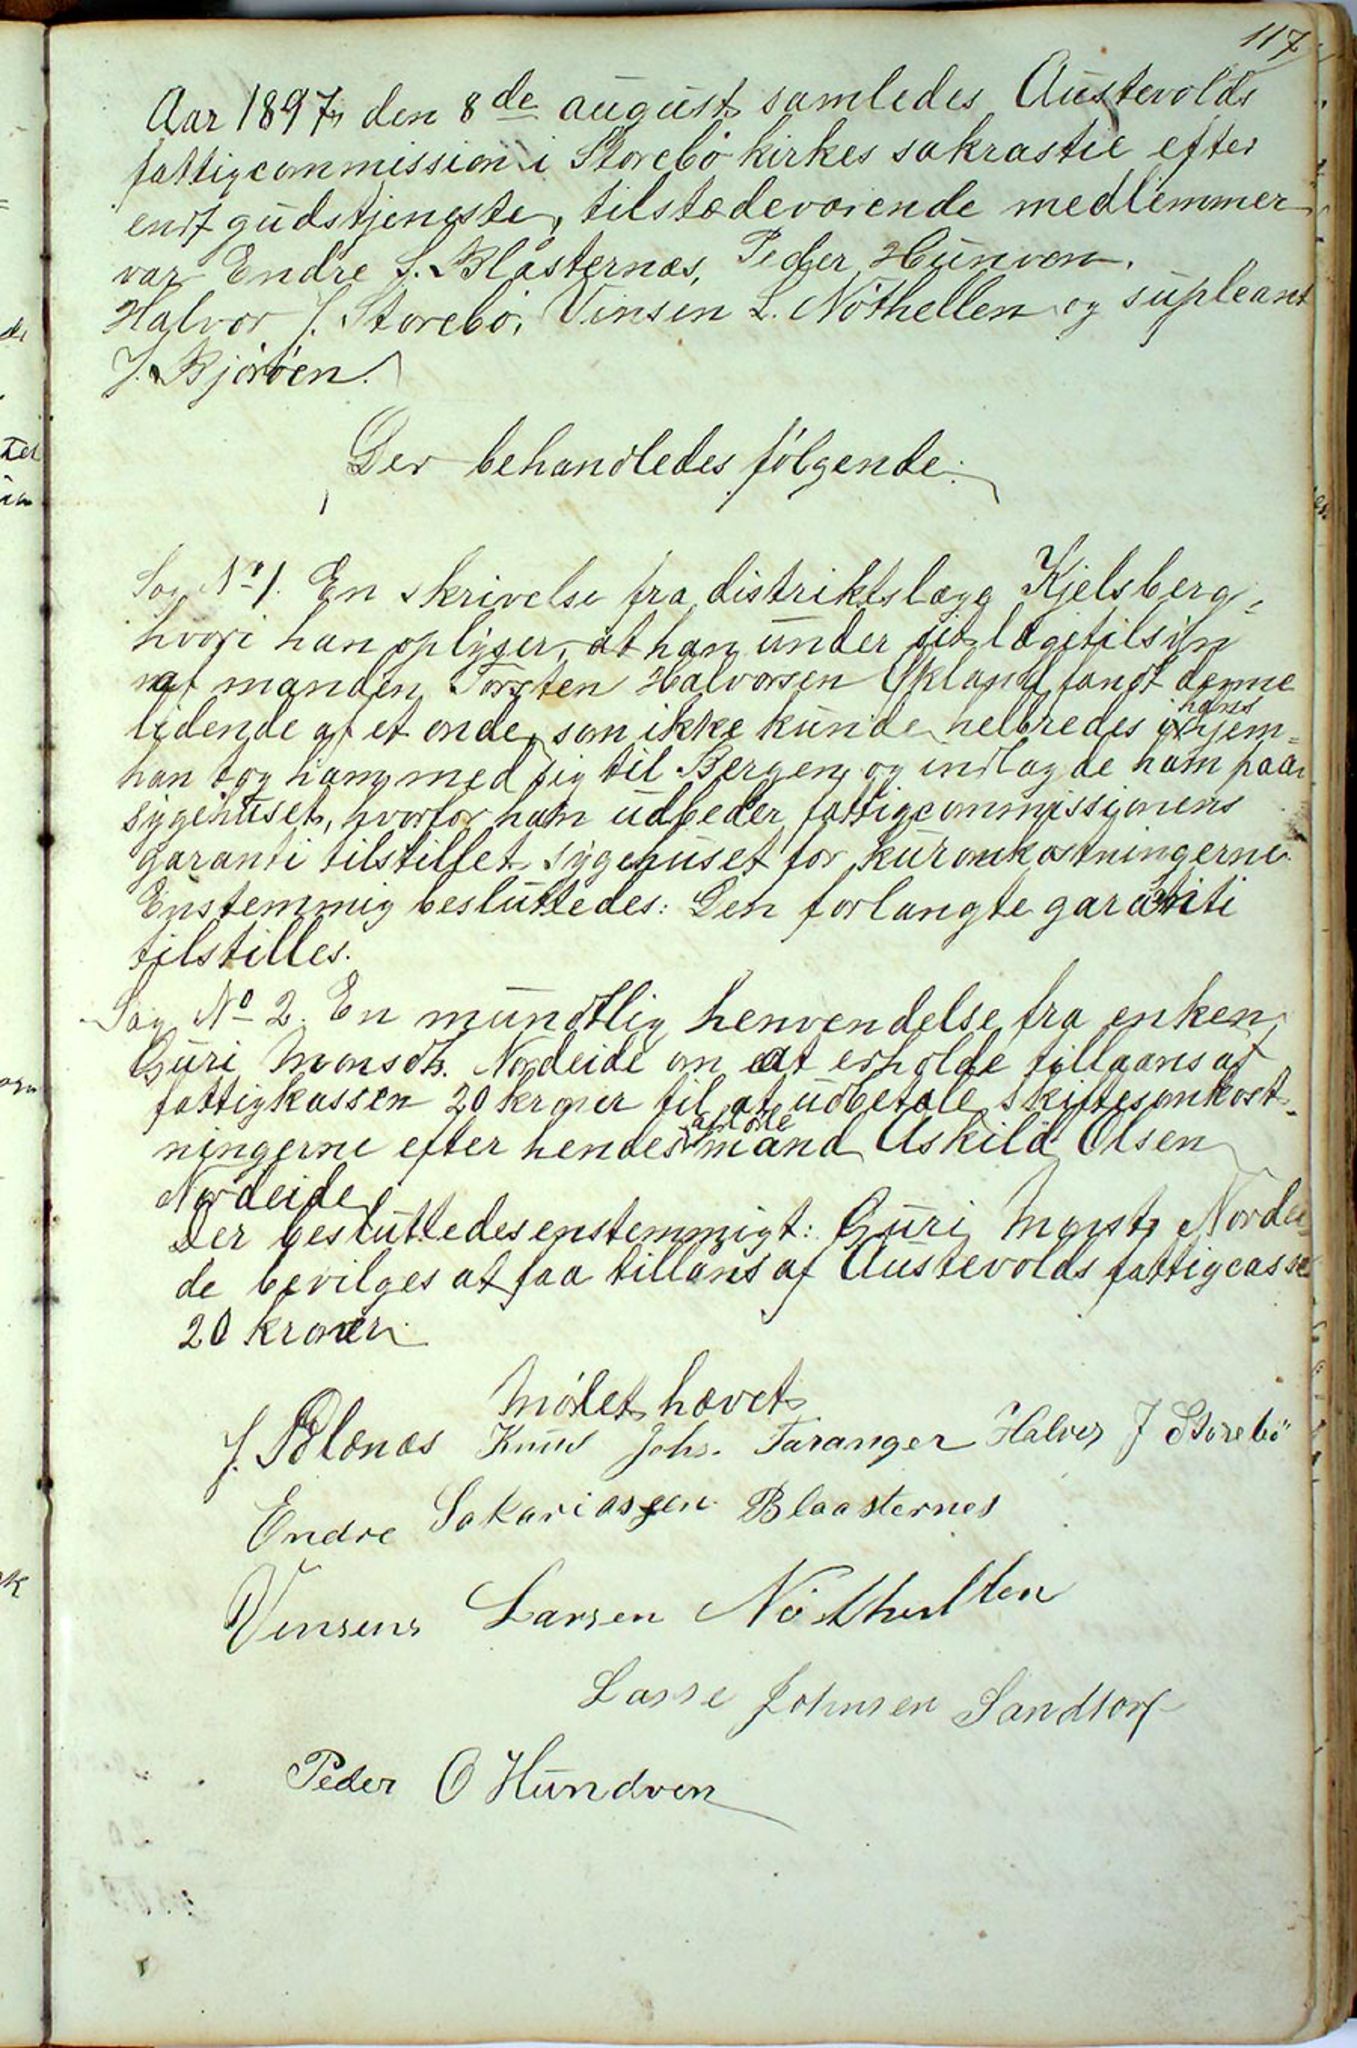 117
Aar 1897, den 8de august samledes Austevolds
fattigcommission i Storebö kirkes sakrastie efter
endt gudstjeneste, tilstedeværende medlemmer
var Endre S. Blåsternæs, Peder Hunven.
Halvor J. Storebö, Vinsen L. Nöthellen og supleant
J. Björöen.
Der behandledes følgende:
Sag No 1. En skrivelse fra distriktslæge Kjelsberg,
hvori han oplyser, at han under sit lægetilsin
af manden Torsten Halvorsen Økland fandt denne
lidende af et onde, som ikke kunde helbredes i hans hjem-
han tog ham med sig til Bergen, og indlagde ham paa
sygehuset, hvorfor han udbeder fattigcommissionens
garanti tilstillet sygehuset for kuromkostningerne.
Enstemmig besluttedes: Den forlangte garanti
tilstilles.
Sag No 2. En mundtlig henvendelse fra enken
Guri Monsdtr. Nordeide om at erholde tillaans af
fattigkassen 20 kroner til at udbetale skiftesomkost-
ningerne efter hendes afdöde mand Askild Olsen
Nordeide
Der besluttedes enstemmigt: Guri Monst. Nordei-
de bevilges at faa tillåns af Austevolds fattigcasse
20 kroner.
Mödet hævet
J. Blenæs Knud Johs. Taranger Halvor J Storebö
Endre Sakariassen Blaasternes
Vinsens Larsen Nöthellen
Lasse Johnsen Sandtorf
Peder O Hundven